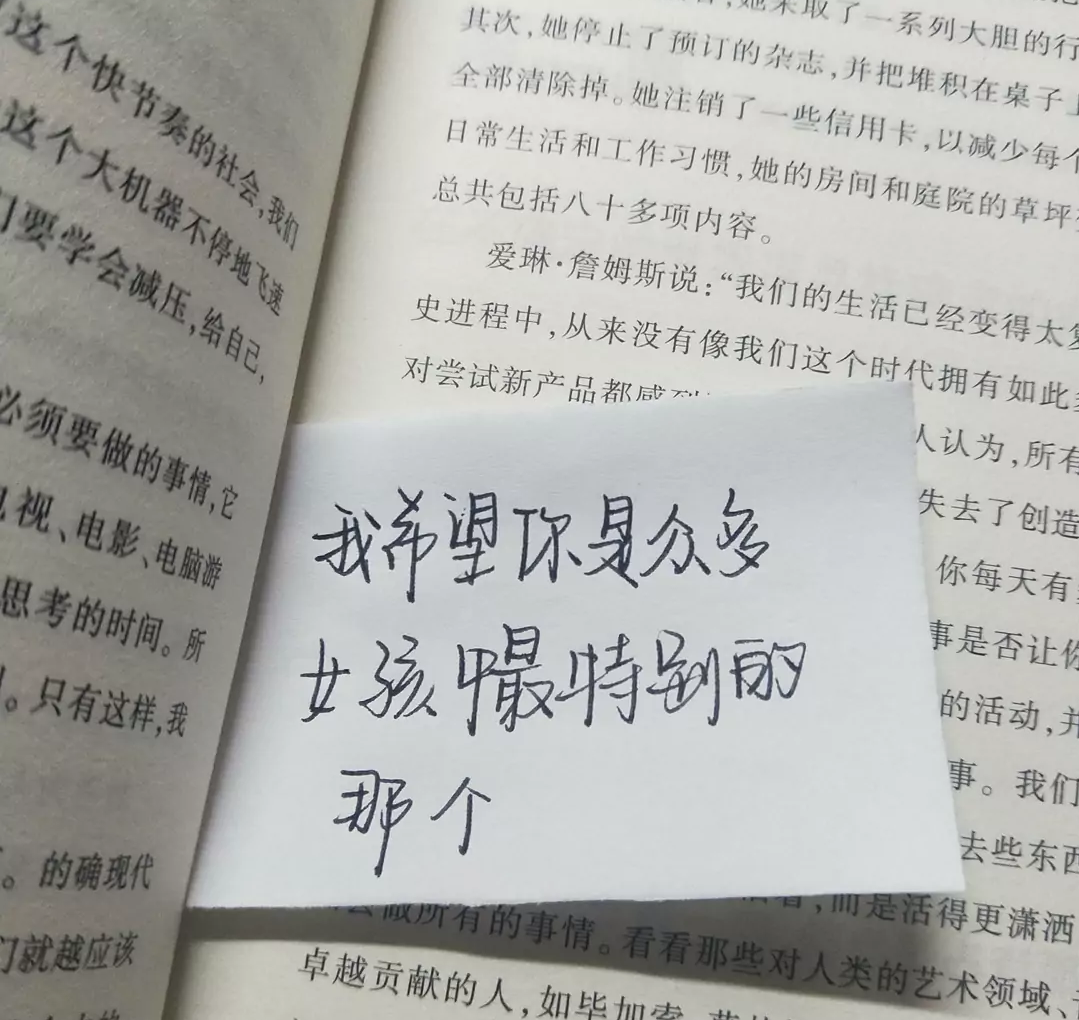 这个快节奏的社会,我们
这个大机器不停地飞速
们要学会减压,给自己,
必须要做的事情,它
电视、电影、电脑游
思考的时间。所
。只有这样,我
。的确现代
们就越应该
她采取了一系列大胆的行
其次,她停止了预订的杂志,并把堆积在桌子上
全部清除掉。她注销了一些信用卡,以减少每个
日常生活和工作习惯,她的房间和庭院的草坪
总共包括八十多项内容。
爱琳·詹姆斯说:“我们的生活已经变得太复
史进程中,从来没有像我们这个时代拥有如此多
对尝试新产品都感到
人认为,所有
失去了创造
你每天有
事是否让你
的活动,并
事。我们
去些东西
而是活得更潇洒
做所有的事情。看看那些对人类的艺术领域、
卓越贡献的人,如毕加索、
我希望你是众多
女孩中最特别的
那个